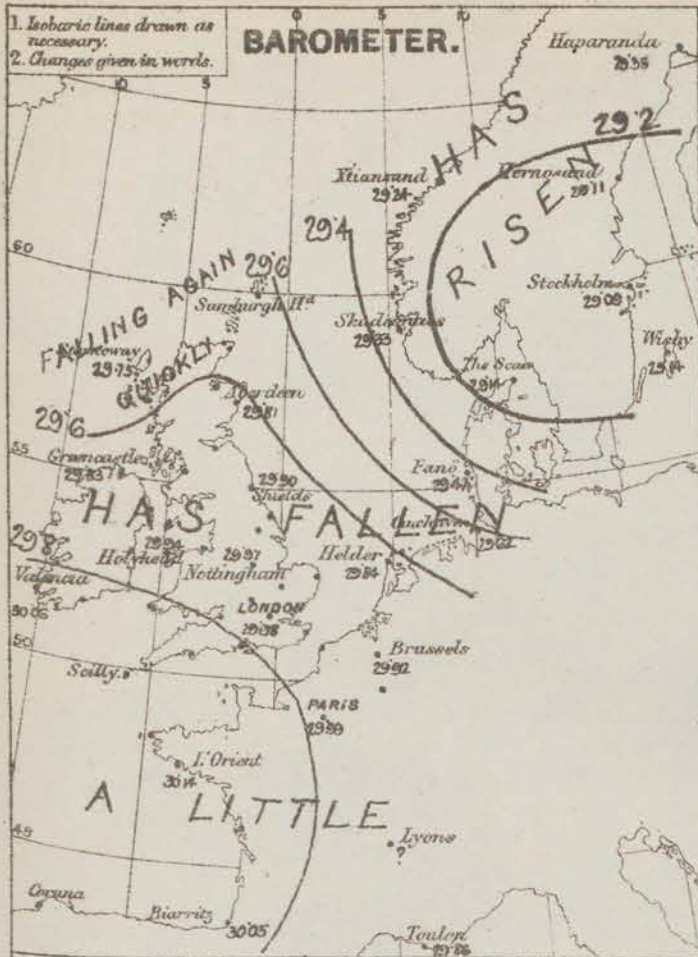 1. Isobaric lines drawn as
necessary.
2. Changes given in words.
BAROMETER.
10
5
0
5
10
Haparanda
29·38
HAS
RISEN
29·2
Xtiansund
29·24
Hernosand
29·11
60
29·6
29·4
FALLING AGAIN
QUICKLY
Sumburgh Hd.
Stockholm
29·09
Skudesnaes
29·33
Wisby
29·14
29·75
The Scaw
29·14
29·6
Aberdeen
29·61
55
Greencastle
Fanö
29·47
29·90
Shields
HAS FALLEN
Cuxhaven
29·62
29·8
Holyhead
29·94
29·97
Nottingham
Helder
29·84
Valencia
30·05
LONDON
29·98
50
Scilly
Brussels
29·92
PARIS
29·99
L'Orient
30·14
A LITTLE
45
Lyons
?
Coruna
Biarritz
30·05
Toulon
29·86